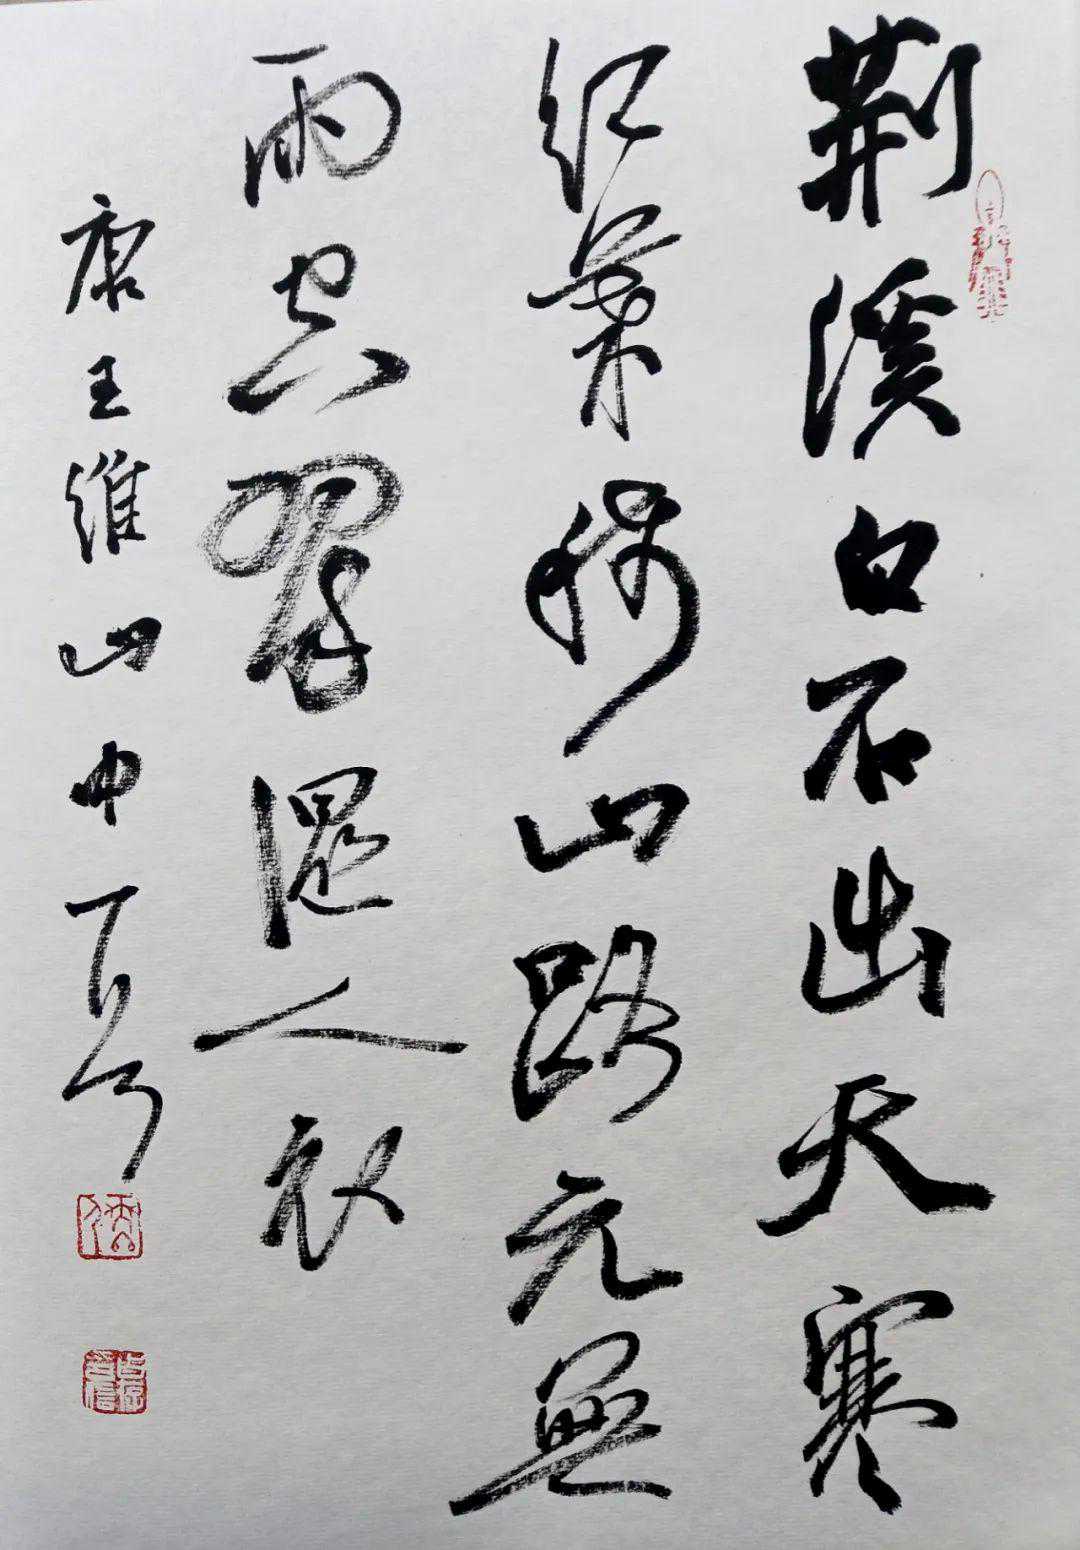 荆溪白石出天寒
紅葉稀山路元無
雨空翠湿人衣
唐王維山中